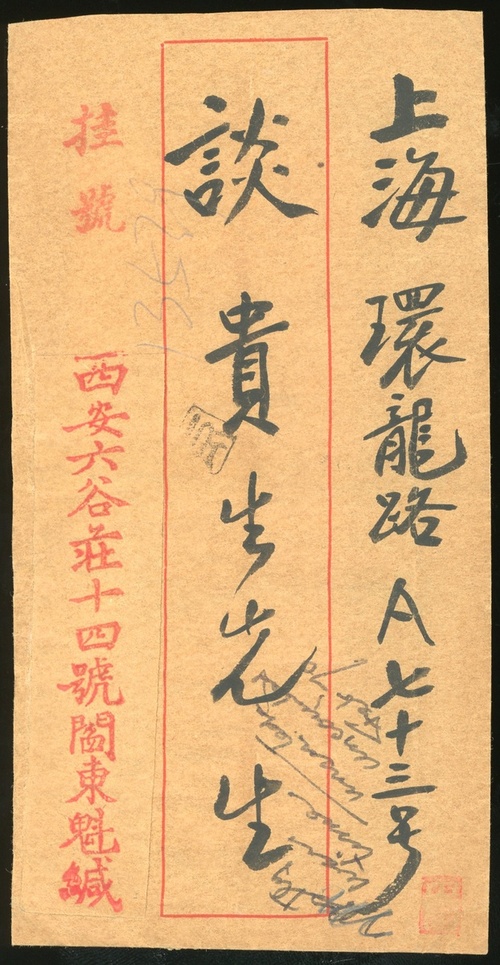 上海環龍路A七十三号
談貴生先生
挂號
西安六谷莊十四號閻東魁緘